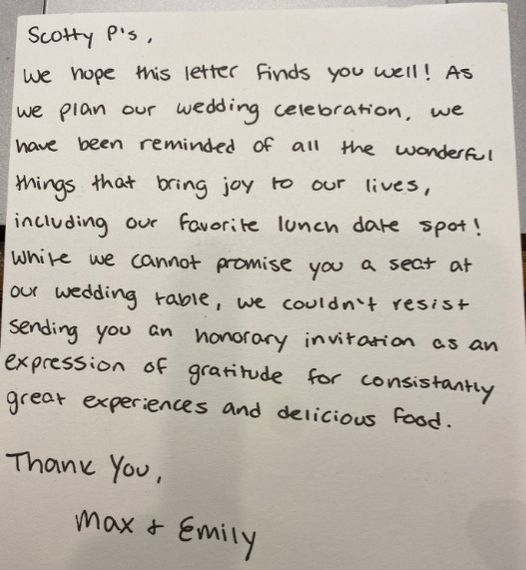 Scotty P's,
We hope this letter finds you well! As
we plan our wedding celebration, we
have been reminded of all the wonderful
things that bring joy to our lives,
including our favorite lunch date spot!
While we cannot promise you a seat at
our wedding table, we couldn't resist
sending you an honorary invitation as an
expression of gratitude for consistantly
great experiences and delicious food.
Thank You,
Max + Emily